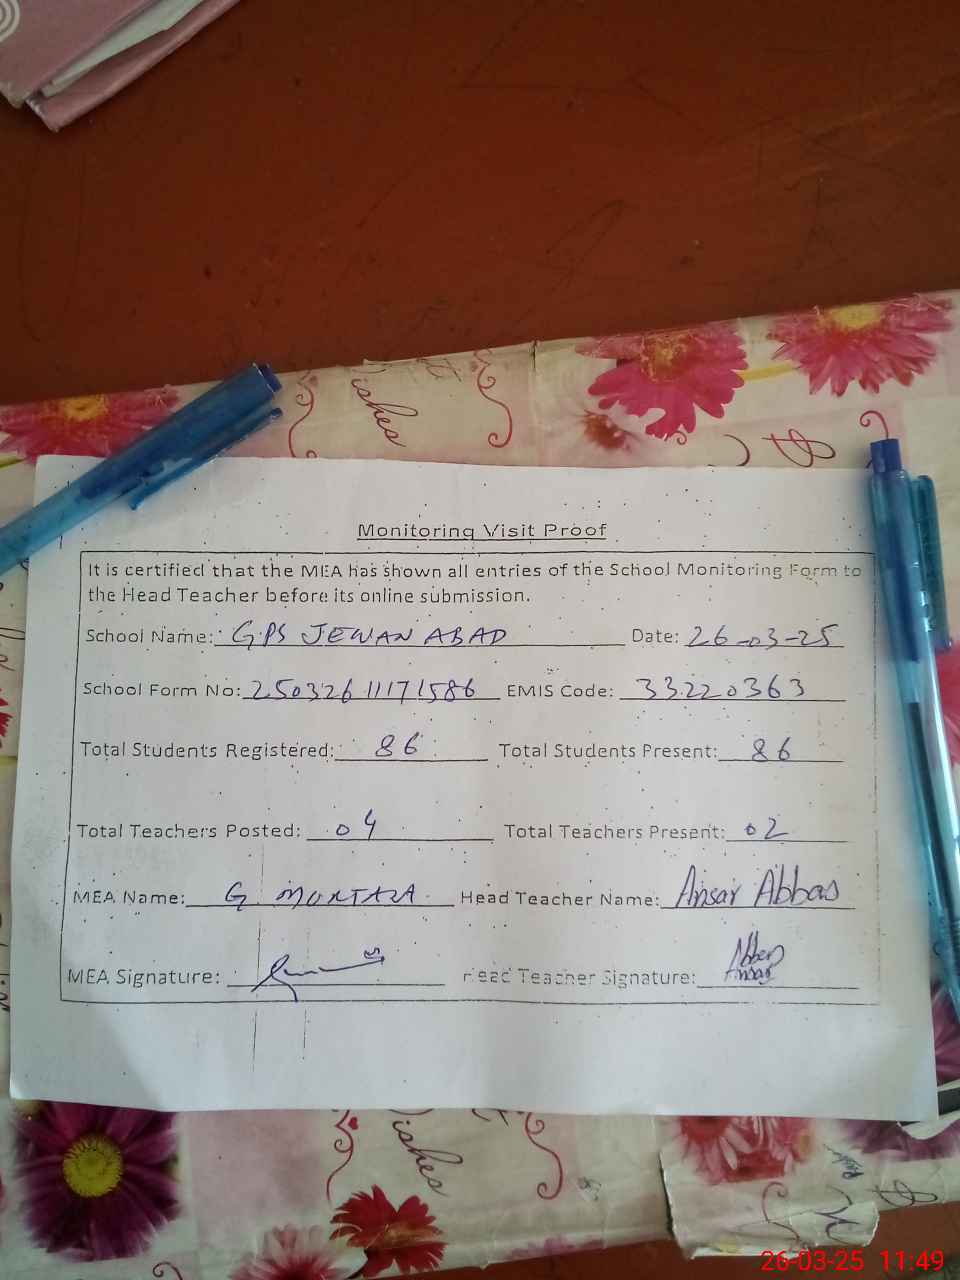 Dishes
Monitoring Visit Proof
It is certified that the MEA has shown all entries of the School Monitoring Form to
the Head Teacher before its online submission.
School Name: GPS JEWAN ABAD Date: 26-03-25
School Form No: 25032611171586 EMIS Code: 33220363
Total Students Registered: 86 Total Students Present: 86
Total Teachers Posted: 04 Total Teachers Present: 02
MEA Name: G. MURTAZA Head Teacher Name: Ansar Abbas
MEA Signature: Head Teacher Signature: Abbas
Ansar
Dishes
26-03-25 11:49